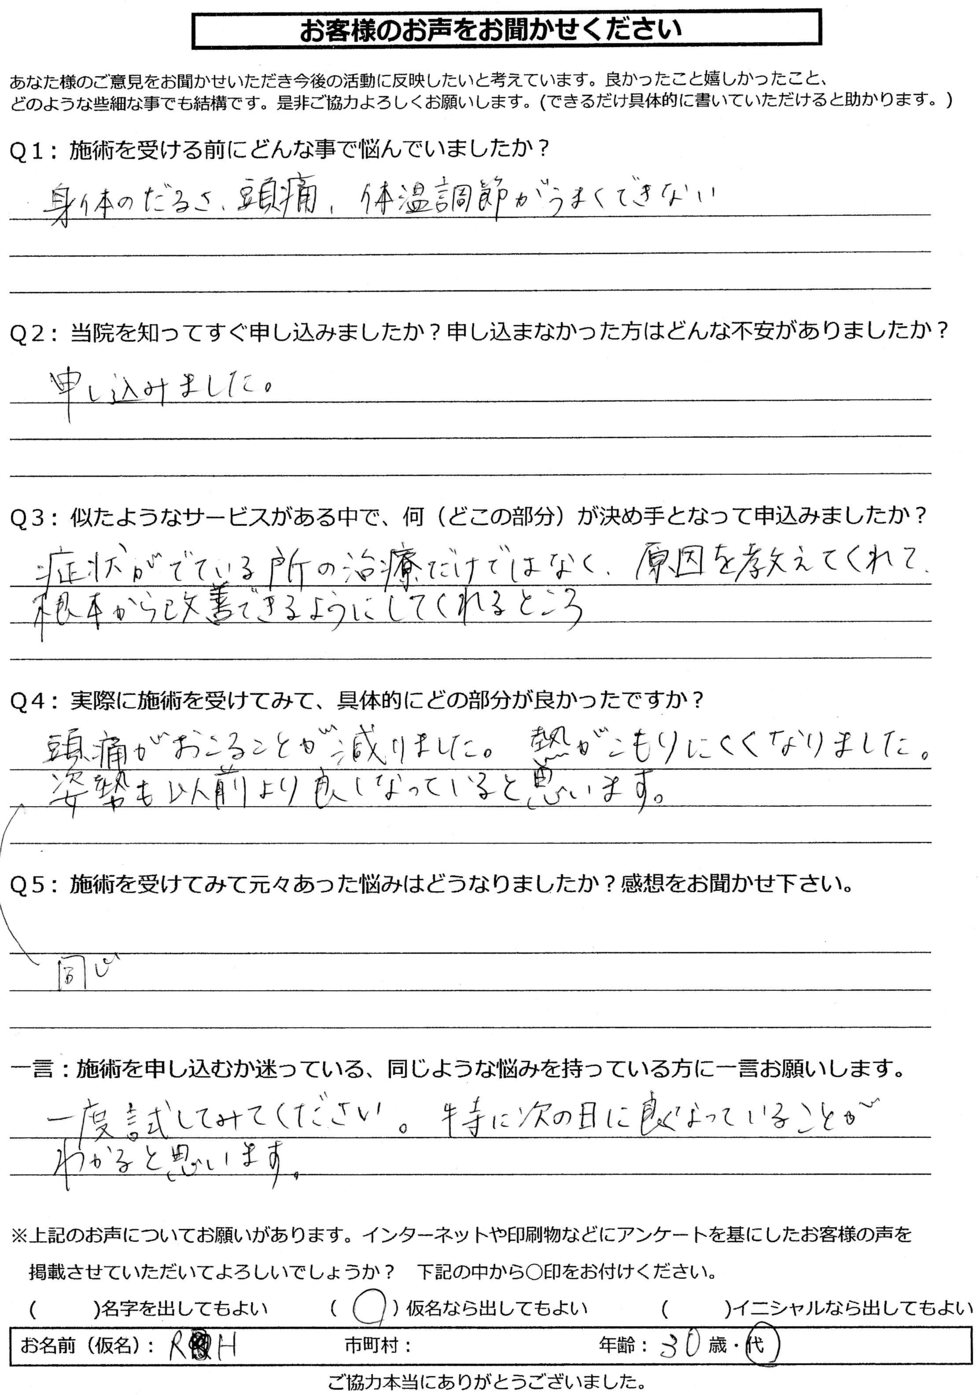 お客様のお声をお聞かせください
あなた様のご意見をお聞かせいただき今後の活動に反映したいと考えています。良かったこと嬉しかったこと、
どのような些細な事でも結構です。是非ご協力よろしくお願いします。(できるだけ具体的に書いていただけると助かります。)
Q1：施術を受ける前にどんな事で悩んでいましたか？
身体のだるさ、頭痛、体温調節がうまくできない
Q2：当院を知ってすぐ申し込みましたか？申し込まなかった方はどんな不安がありましたか？
申し込みました。
Q3：似たようなサービスがある中で、何（どこの部分）が決め手となって申込みましたか？
症状がでている所の治療だけではなく、原因を教えてくれて、
根本から改善できるようにしてくれるところ
Q4：実際に施術を受けてみて、具体的にどの部分が良かったですか？
頭痛がおこることが減りました。熱がこもりにくくなりました。
姿勢も以前より良くなっていると思います。
Q5：施術を受けてみて元々あった悩みはどうなりましたか？感想をお聞かせ下さい。
同じ
一言：施術を申し込むか迷っている、同じような悩みを持っている方に一言お願いします。
一度試してみてください。特に次の日に良くなっていることが
わかると思います。
※上記のお声についてお願いがあります。インターネットや印刷物などにアンケートを基にしたお客様の声を
掲載させていただいてよろしいでしょうか？　下記の中から〇印をお付けください。
(　　)名字を出してもよい　(〇)仮名なら出してもよい　(　　)イニシャルなら出してもよい
お名前（仮名）：R H　市町村：　年齢：30歳・代
ご協力本当にありがとうございました。